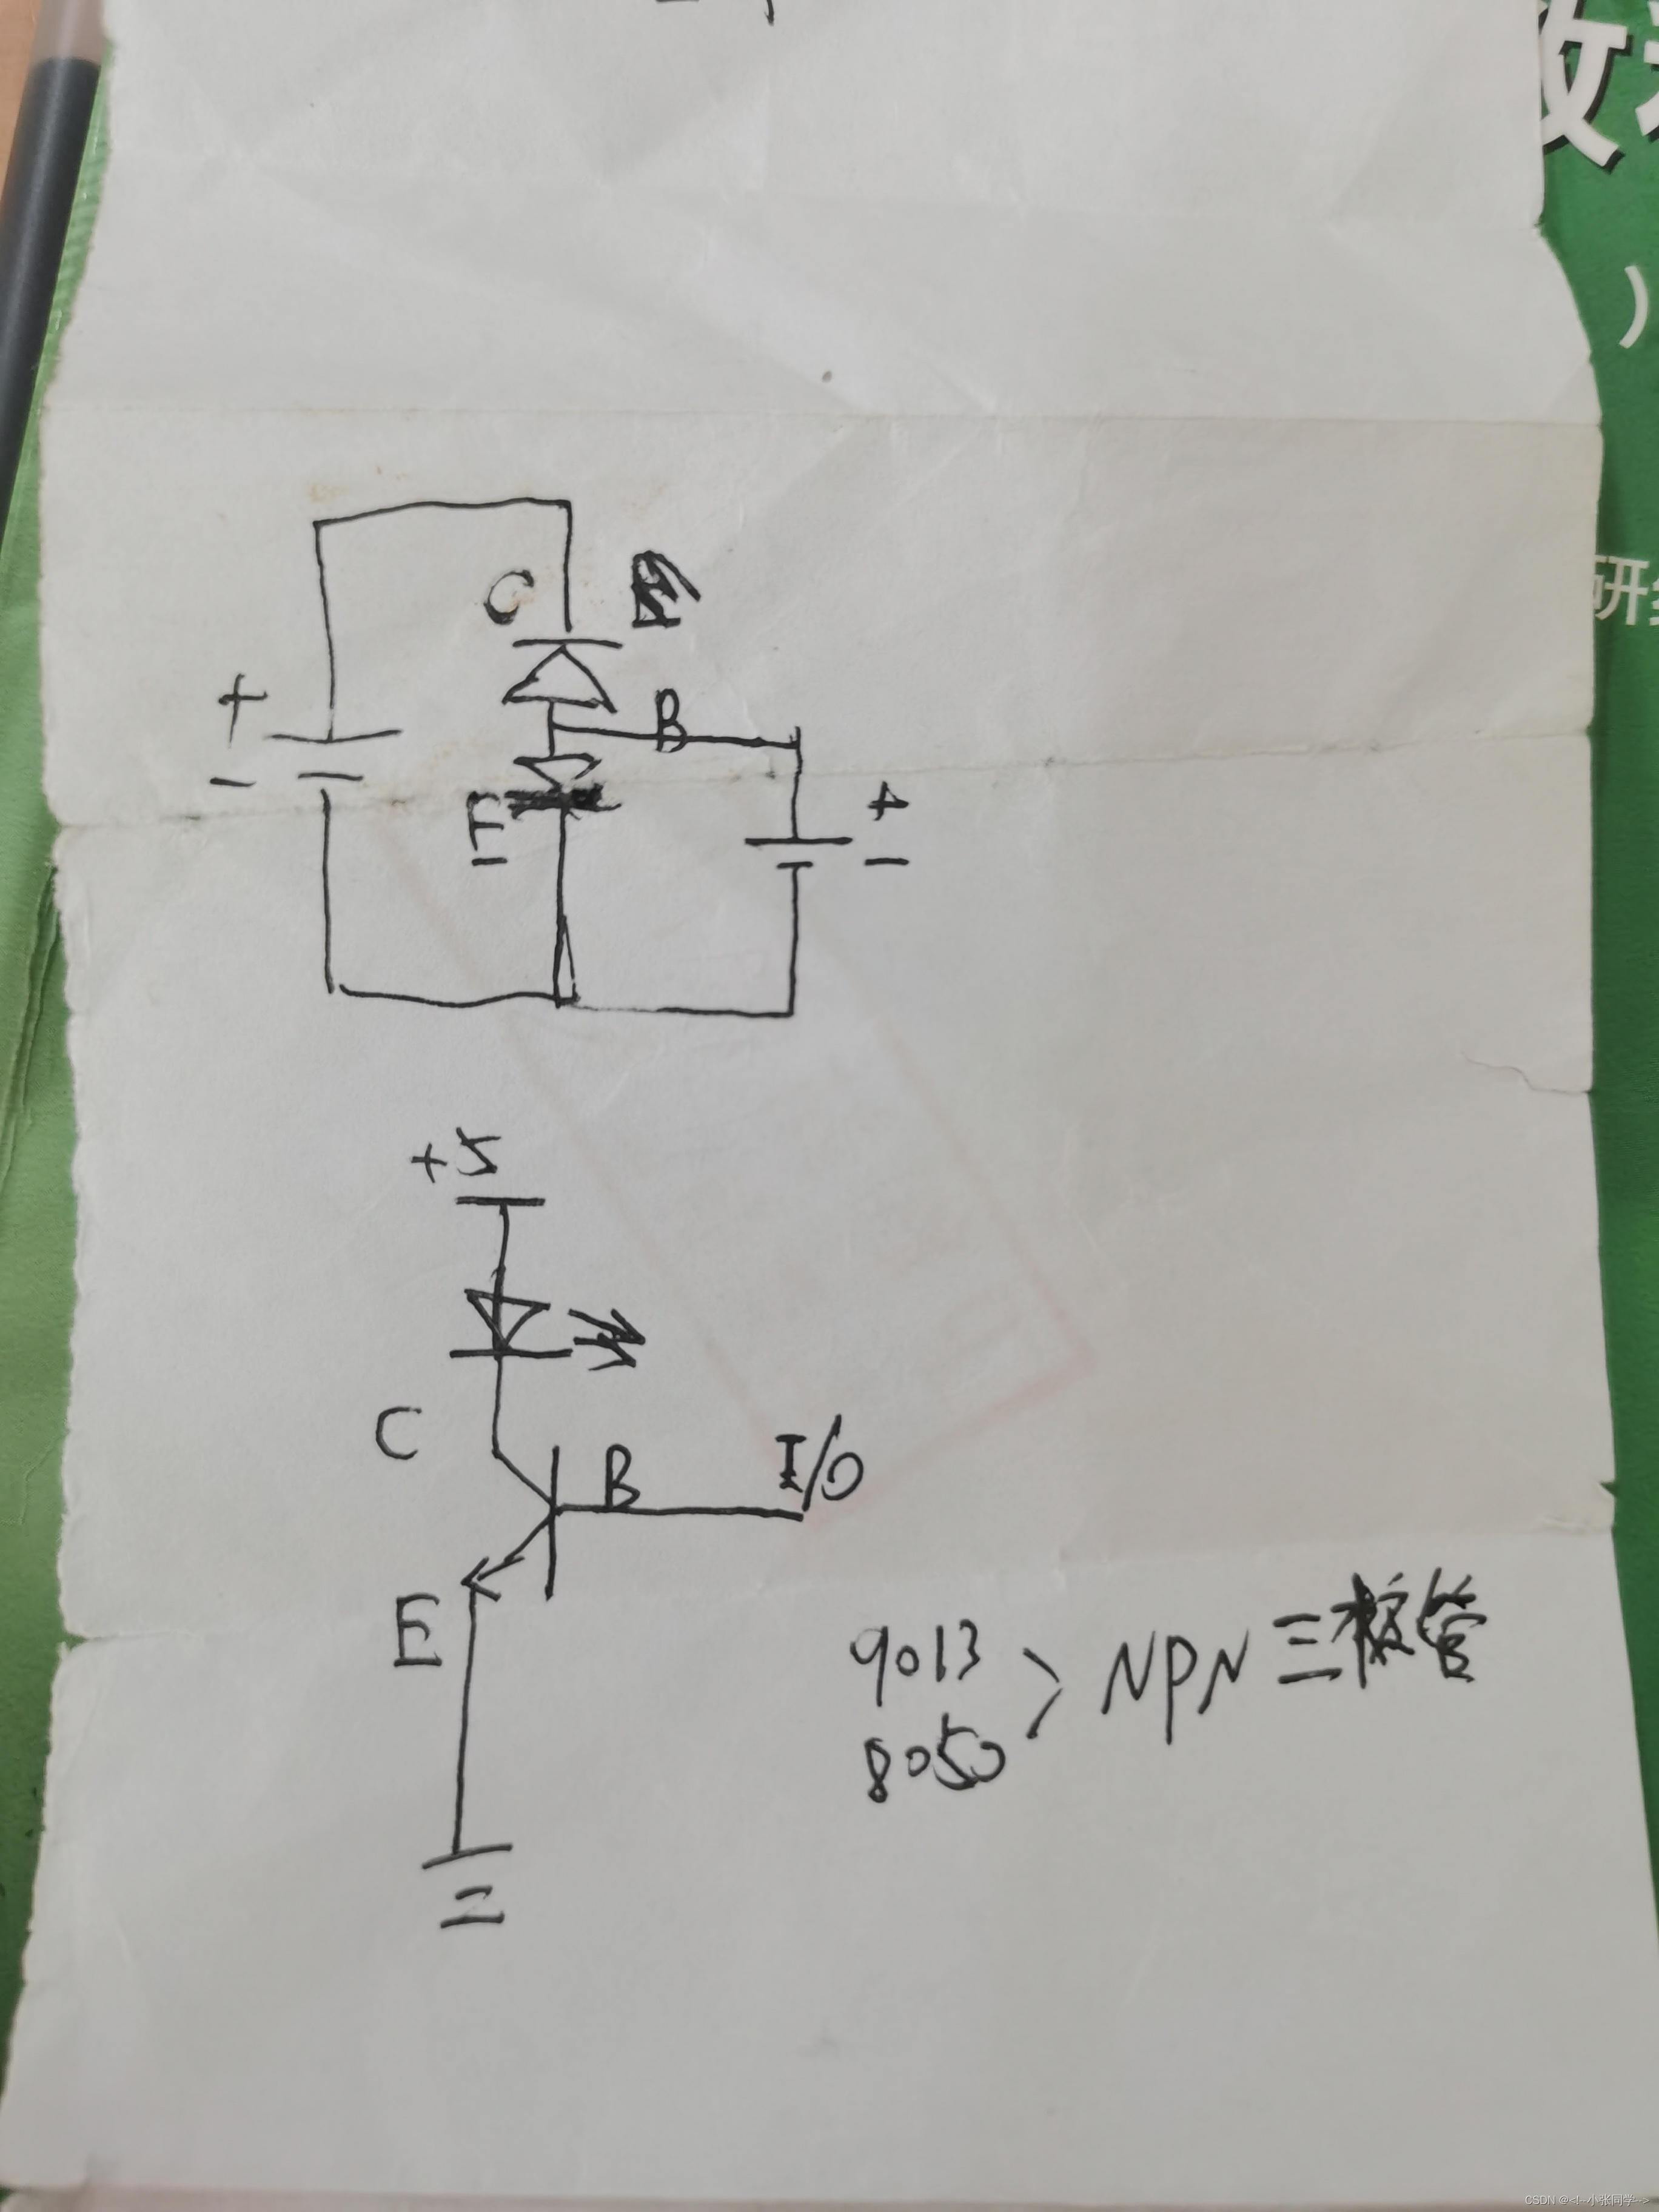 改
)
研
C
+
B
-
E
+
-
+5
C
B
I/O
E
9013
8050
NPN 三极管
CSDN @<!--小张同学-->